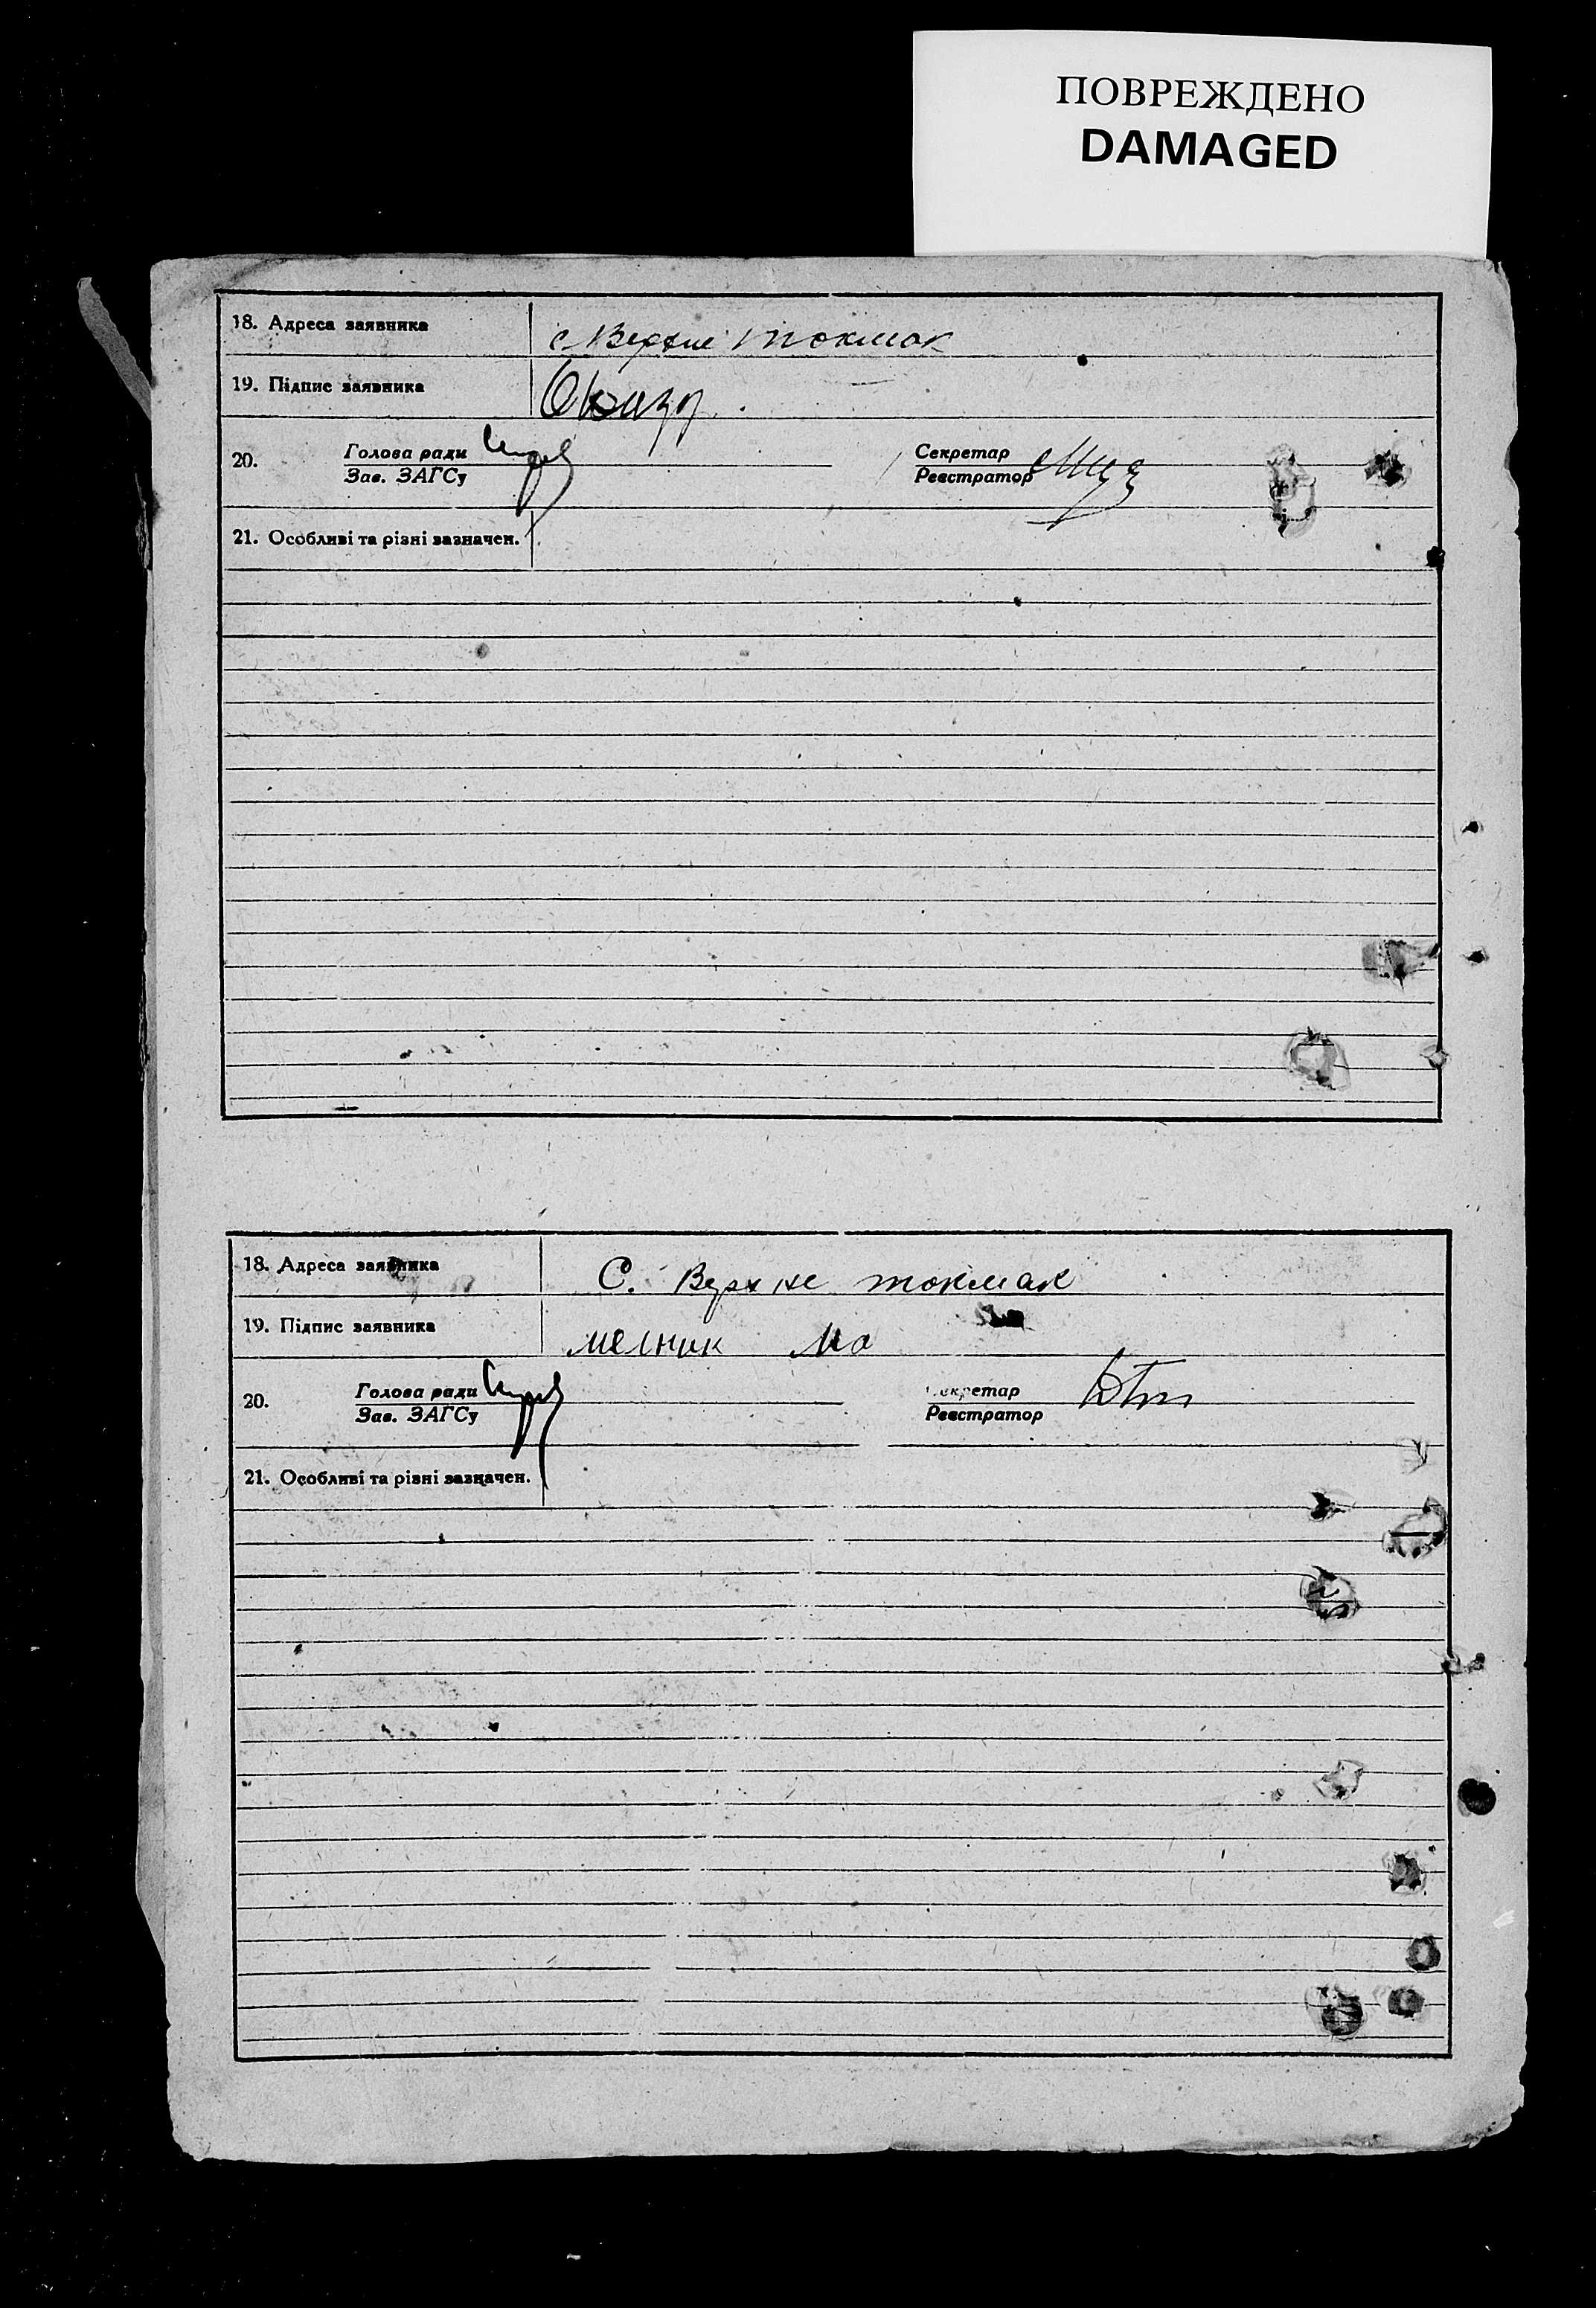 ПОВРЕЖДЕНО
DAMAGED
18. Адреса заявника с Верхне токмак
19. Підпис заявника
20. Голова ради Секретар
Зав. ЗАГСу Реєстратор
21. Особливі та різні зазначен.
18. Адреса заявника С. Верхне токмак
19. Підпис заявника мелник Ма
20. Голова ради Секретар
Зав. ЗАГСу Реєстратор
21. Особливі та різні зазначен.